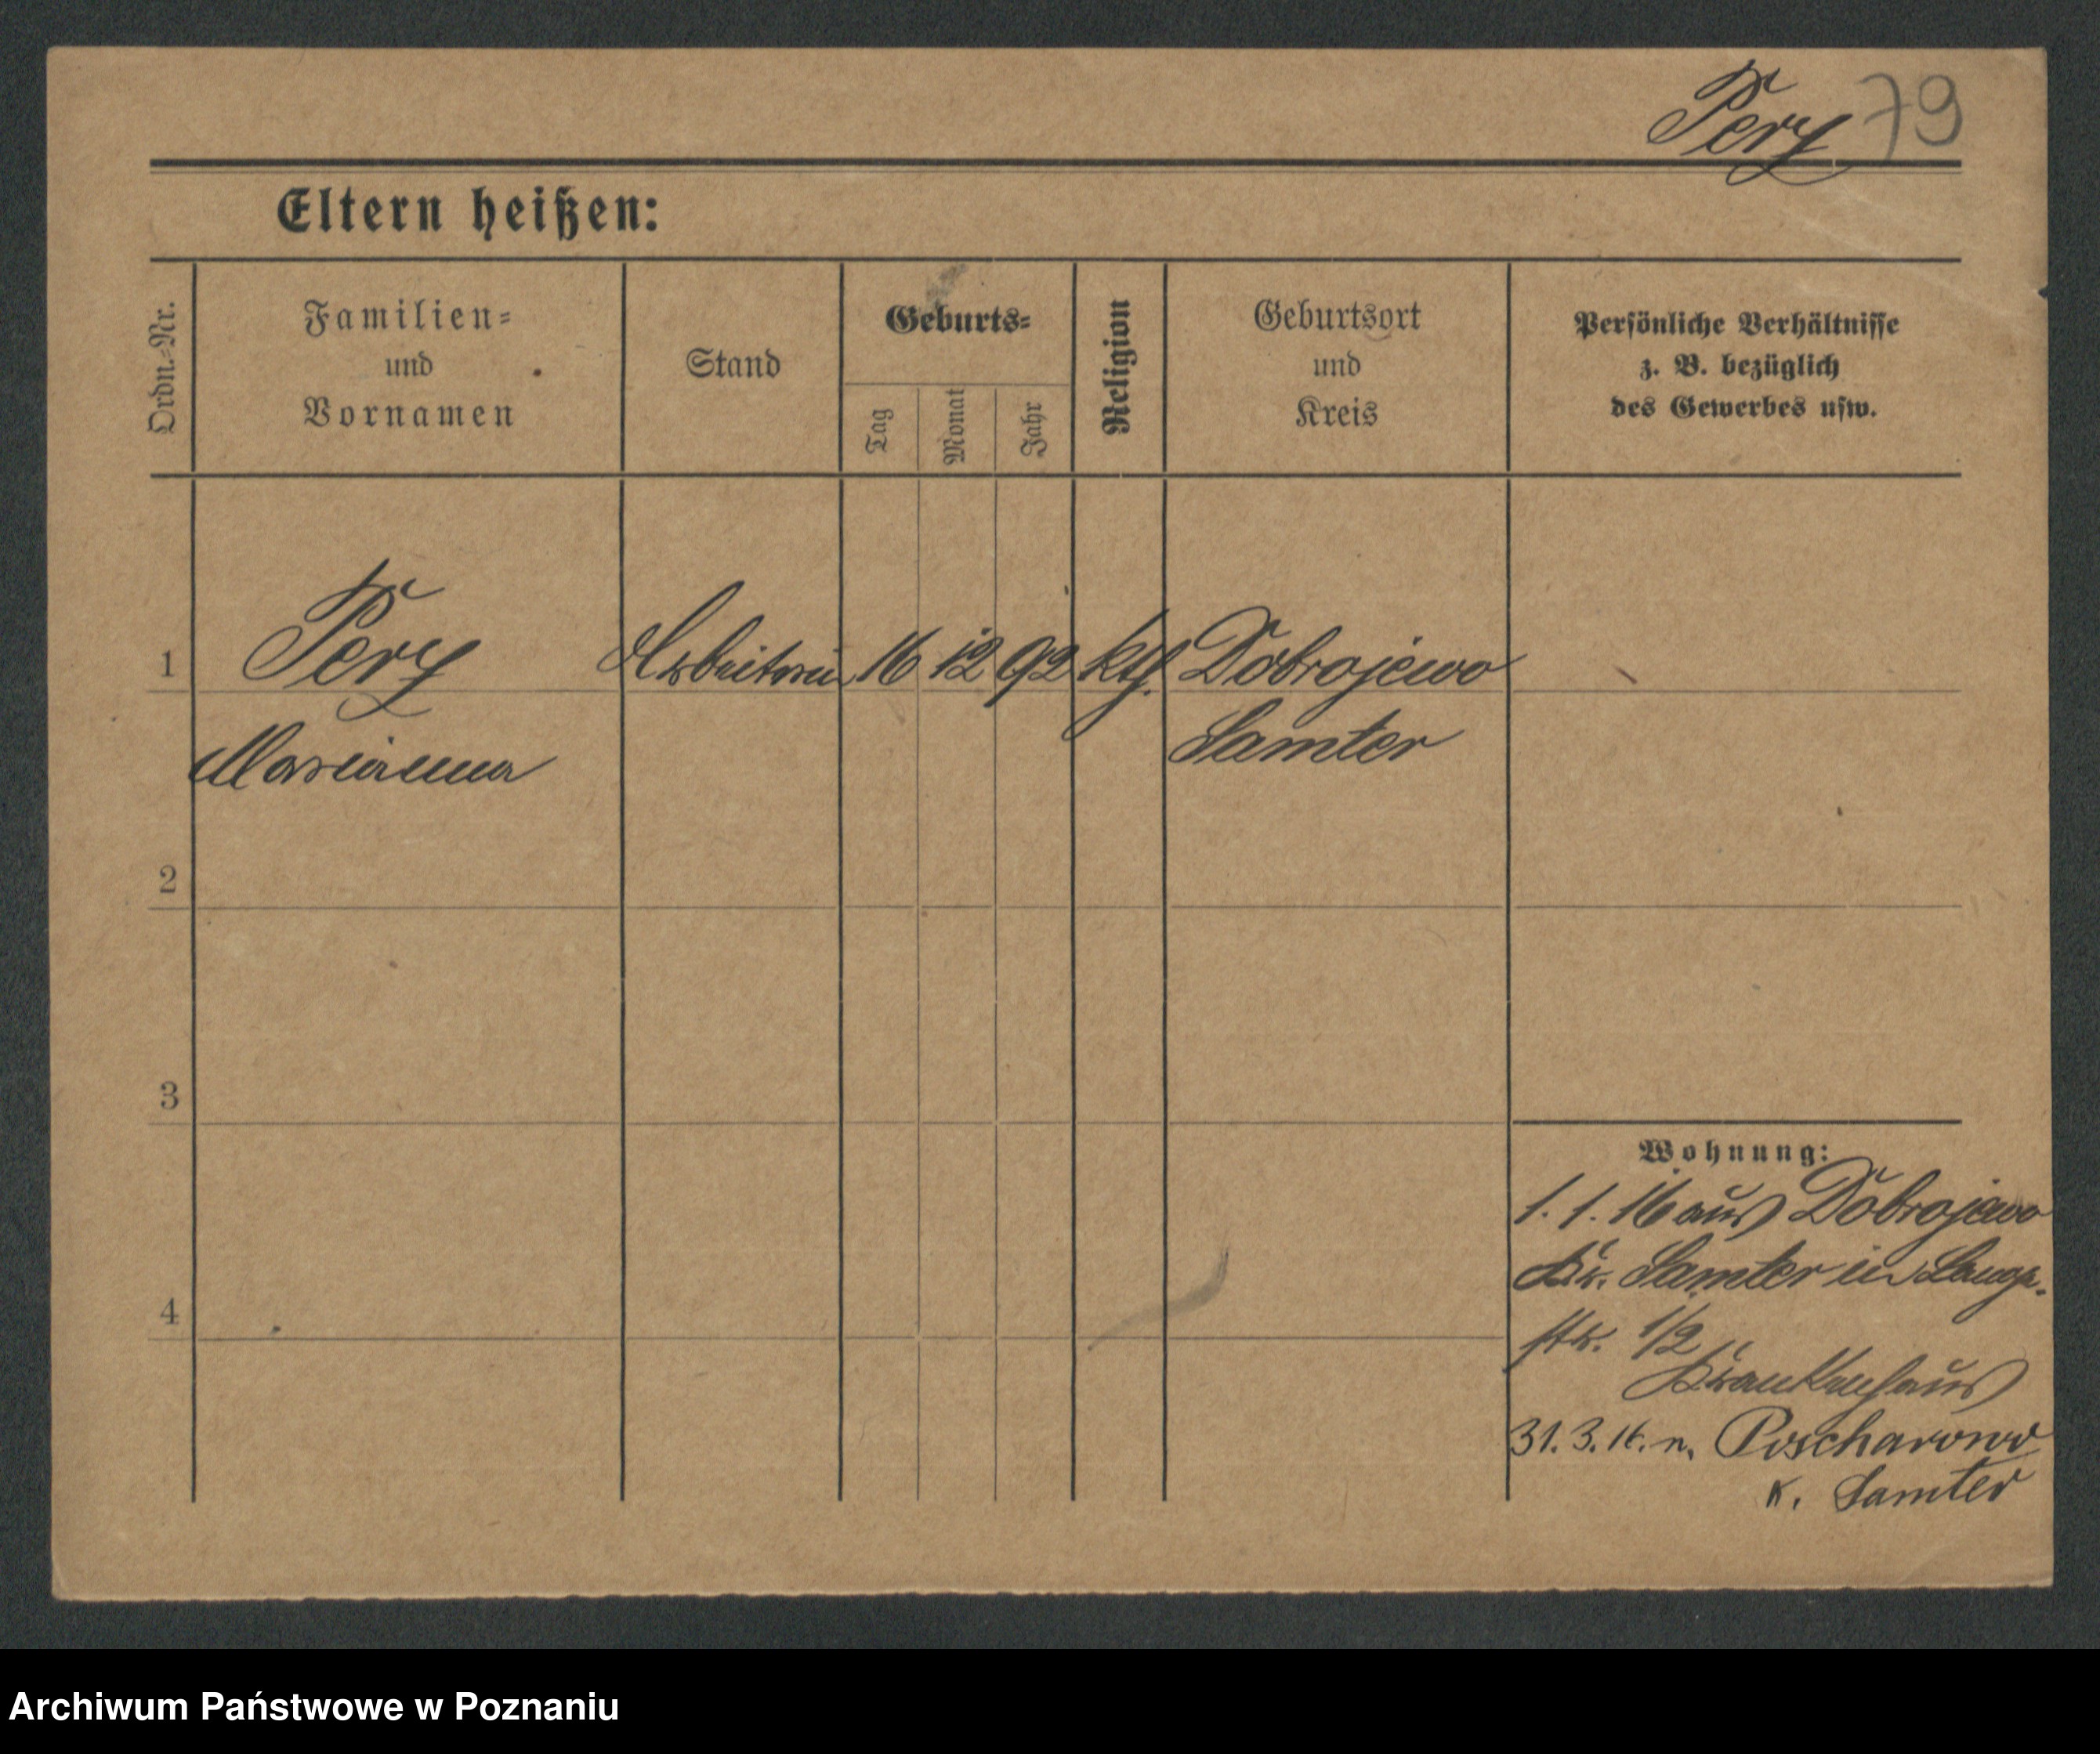 Pery 79
Eltern heißen:
Ordn.-Nr.
Familien-
und
Vornamen
Stand
Geburts-
Tag
Monat
Jahr
Religion
Geburtsort
und
Kreis
Persönliche Verhältnisse
z. B. bezüglich
des Gewerbes usw.
1 Pery Arbeiterin 16 12 92 kth. Dobrojewo
Marianna Samter
2
3
4
Wohnung:
1. 1. 16 aus Dobrojewo
Kr. Samter in Lange-
str. 1/2
Krankenhaus
31. 3. 16. n.
K. Samter
Archiwum Państwowe w Poznaniu